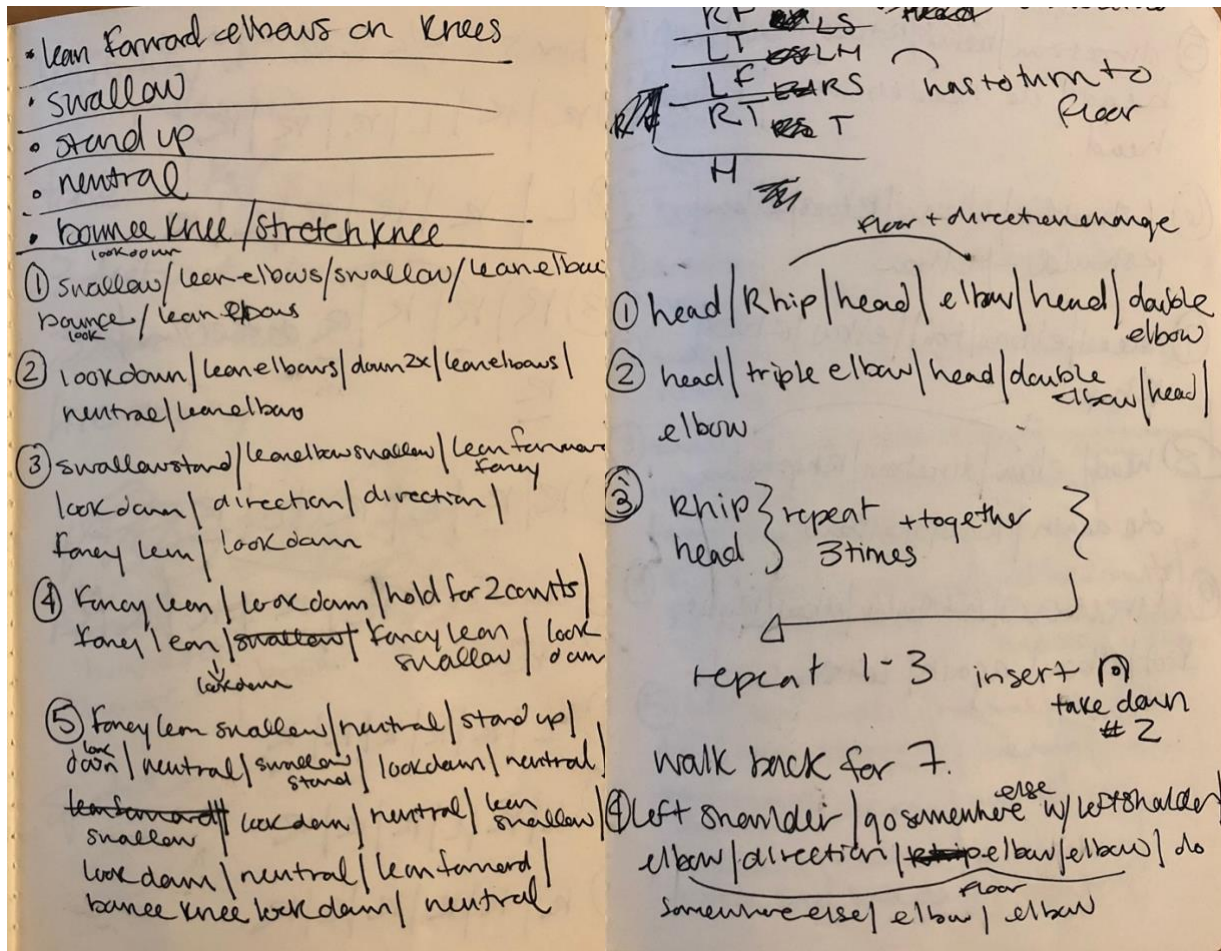 • lean forward elbows on knees
• swallow
• stand up
• neutral
• bounce knee / stretch knee
look down
① swallow / lean elbows / swallow / lean elbow
bounce / lean elbows
look
② look down / lean elbows / down 2x / lean elbows /
neutral / lean elbow
③ swallow stand / lean elbow swallow / lean forward
fancy
look down / direction / direction /
fancy lean / look down
④ fancy lean / look down / hold for 2 counts /
fancy lean / swallow / fancy lean / look
swallow down
↓
look down
⑤ fancy lean swallow / neutral / stand up /
look
down / neutral / swallow / look down / neutral /
stand
lean forward / look down / neutral / lean
swallow swallow /
look down / neutral / lean forward /
bounce knee look down / neutral
RF LS
LT LH
LF RS has to turn to
RT T floor
H
floor + direction change
① head / R hip / head / elbow / head / double
elbow
② head / triple elbow / head / double
elbow / head /
elbow
③ R hip } repeat + together }
head } 3 times
repeat 1-3 insert
take down
#2
walk back for 7.
④ left shoulder / go somewhere else w/ left shoulder
elbow / direction / elbow / elbow / do
floor
somewhere else / elbow / elbow